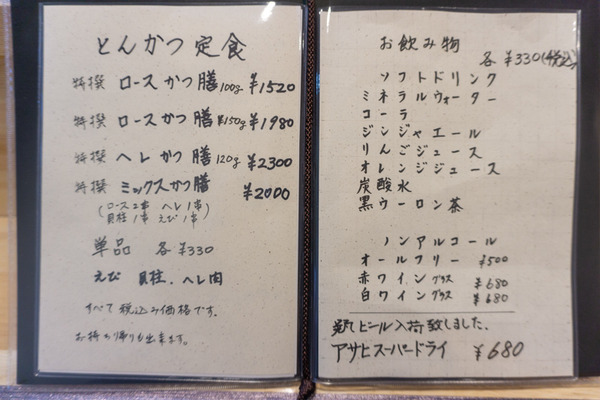 とんかつ定食
特撰 ロースかつ膳 100g ¥1520
特撰 ロースかつ膳 150g ¥1980
特撰 ヘレかつ膳 120g ¥2300
特撰 ミックスかつ膳 ¥2000
(ロース2串 ヘレ1串
貝柱1串 えび1串)
単品 各 ¥330
えび 貝柱、ヘレ肉
すべて税込み価格です。
お持ち帰りも出来ます。
お飲み物
各 ¥330(税込)
ソフトドリンク
ミネラルウォーター
コーラ
ジンジャエール
りんごジュース
オレンジジュース
炭酸水
黒ウーロン茶
ノンアルコール
オールフリー ¥500
赤ワイングラス ¥680
白ワイングラス ¥680
ビール入荷致しました、
アサヒスーパードライ ¥680